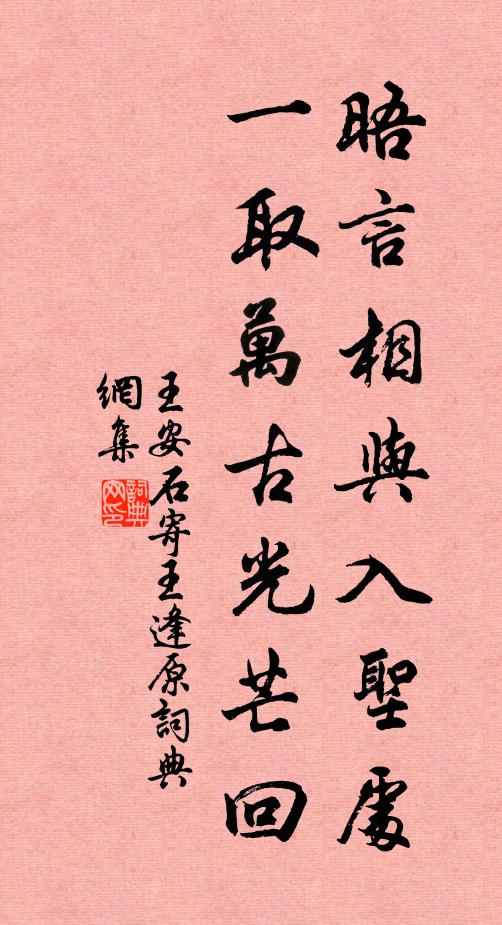 晤言相與入聖處
一取萬古光芒回
王安石寄王逢原詞典
網集
詞典
网印